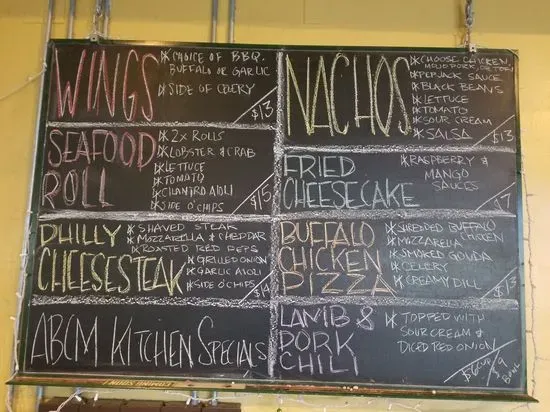 WINGS
* CHOICE OF BBQ,
BUFFALO OR GARLIC
* SIDE OF CELERY
$13
SEAFOOD
ROLL
* 2X ROLLS
* LOBSTER & CRAB
* LETTUCE
* TOMATO
* CILANTRO AIOLI
* SIDE O'CHIPS
$15
PHILLY
CHEESESTEAK
* SHAVED STEAK
* MOZZARELLA & CHEDDAR
* ROASTED RED PEPS
* GRILLED ONION
* GARLIC AIOLI
* SIDE O'CHIPS
$14
ABCM KITCHEN SPECIALS
NACHOS
* CHOOSE CHICKEN,
PORK, OR
* PEPJACK SAUCE
* BLACK BEANS
* LETTUCE
* TOMATO
* SOUR CREAM
* SALSA
$13
FRIED
CHEESECAKE
* RASPBERRY &
MANGO
SAUCES
$7
BUFFALO
CHICKEN
PIZZA
* SHREDDED BUFFALO
CHICKEN
* MOZZARELLA
* SMOKED GOUDA
* CELERY
* CREAMY DILL
$13
LAMB &
PORK
CHILI
* TOPPED WITH
SOUR CREAM &
DICED RED ONION
$6 CUP/$9
BOWL